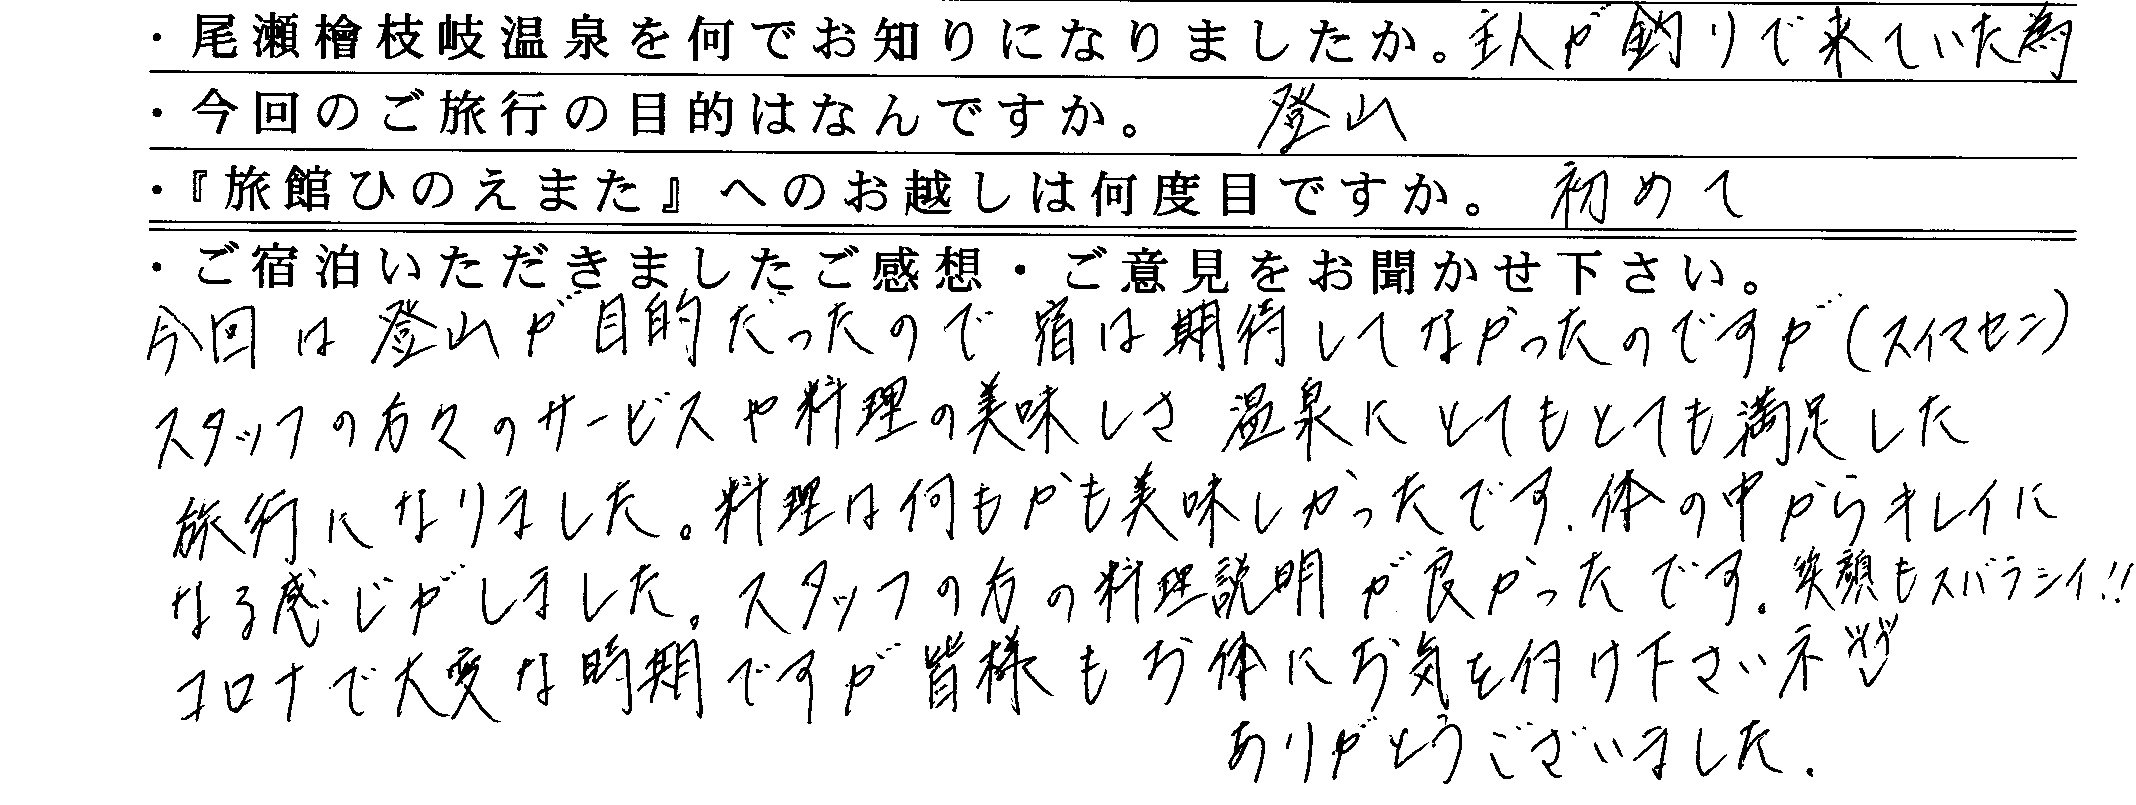 ・尾瀬檜枝岐温泉を何でお知りになりましたか。主人が釣りで来ていた為
・今回のご旅行の目的はなんですか。 登山
・『旅館ひのえまた』へのお越しは何度目ですか。 初めて
・ご宿泊いただきましたご感想・ご意見をお聞かせ下さい。
今回は登山が目的だったので宿は期待してなかったのですが(スイマセン)
スタッフの方々のサービスや料理の美味しさ 温泉にとてもとても満足した
旅行になりました。料理は何もかも美味しかったです.体の中からキレイに
なる感じがしました。スタッフの方の料理説明が良かったです。笑顔もスバラシイ!!
コロナで大変な時期ですが皆様もお体にお気を付け下さいネ
ありがとうございました.